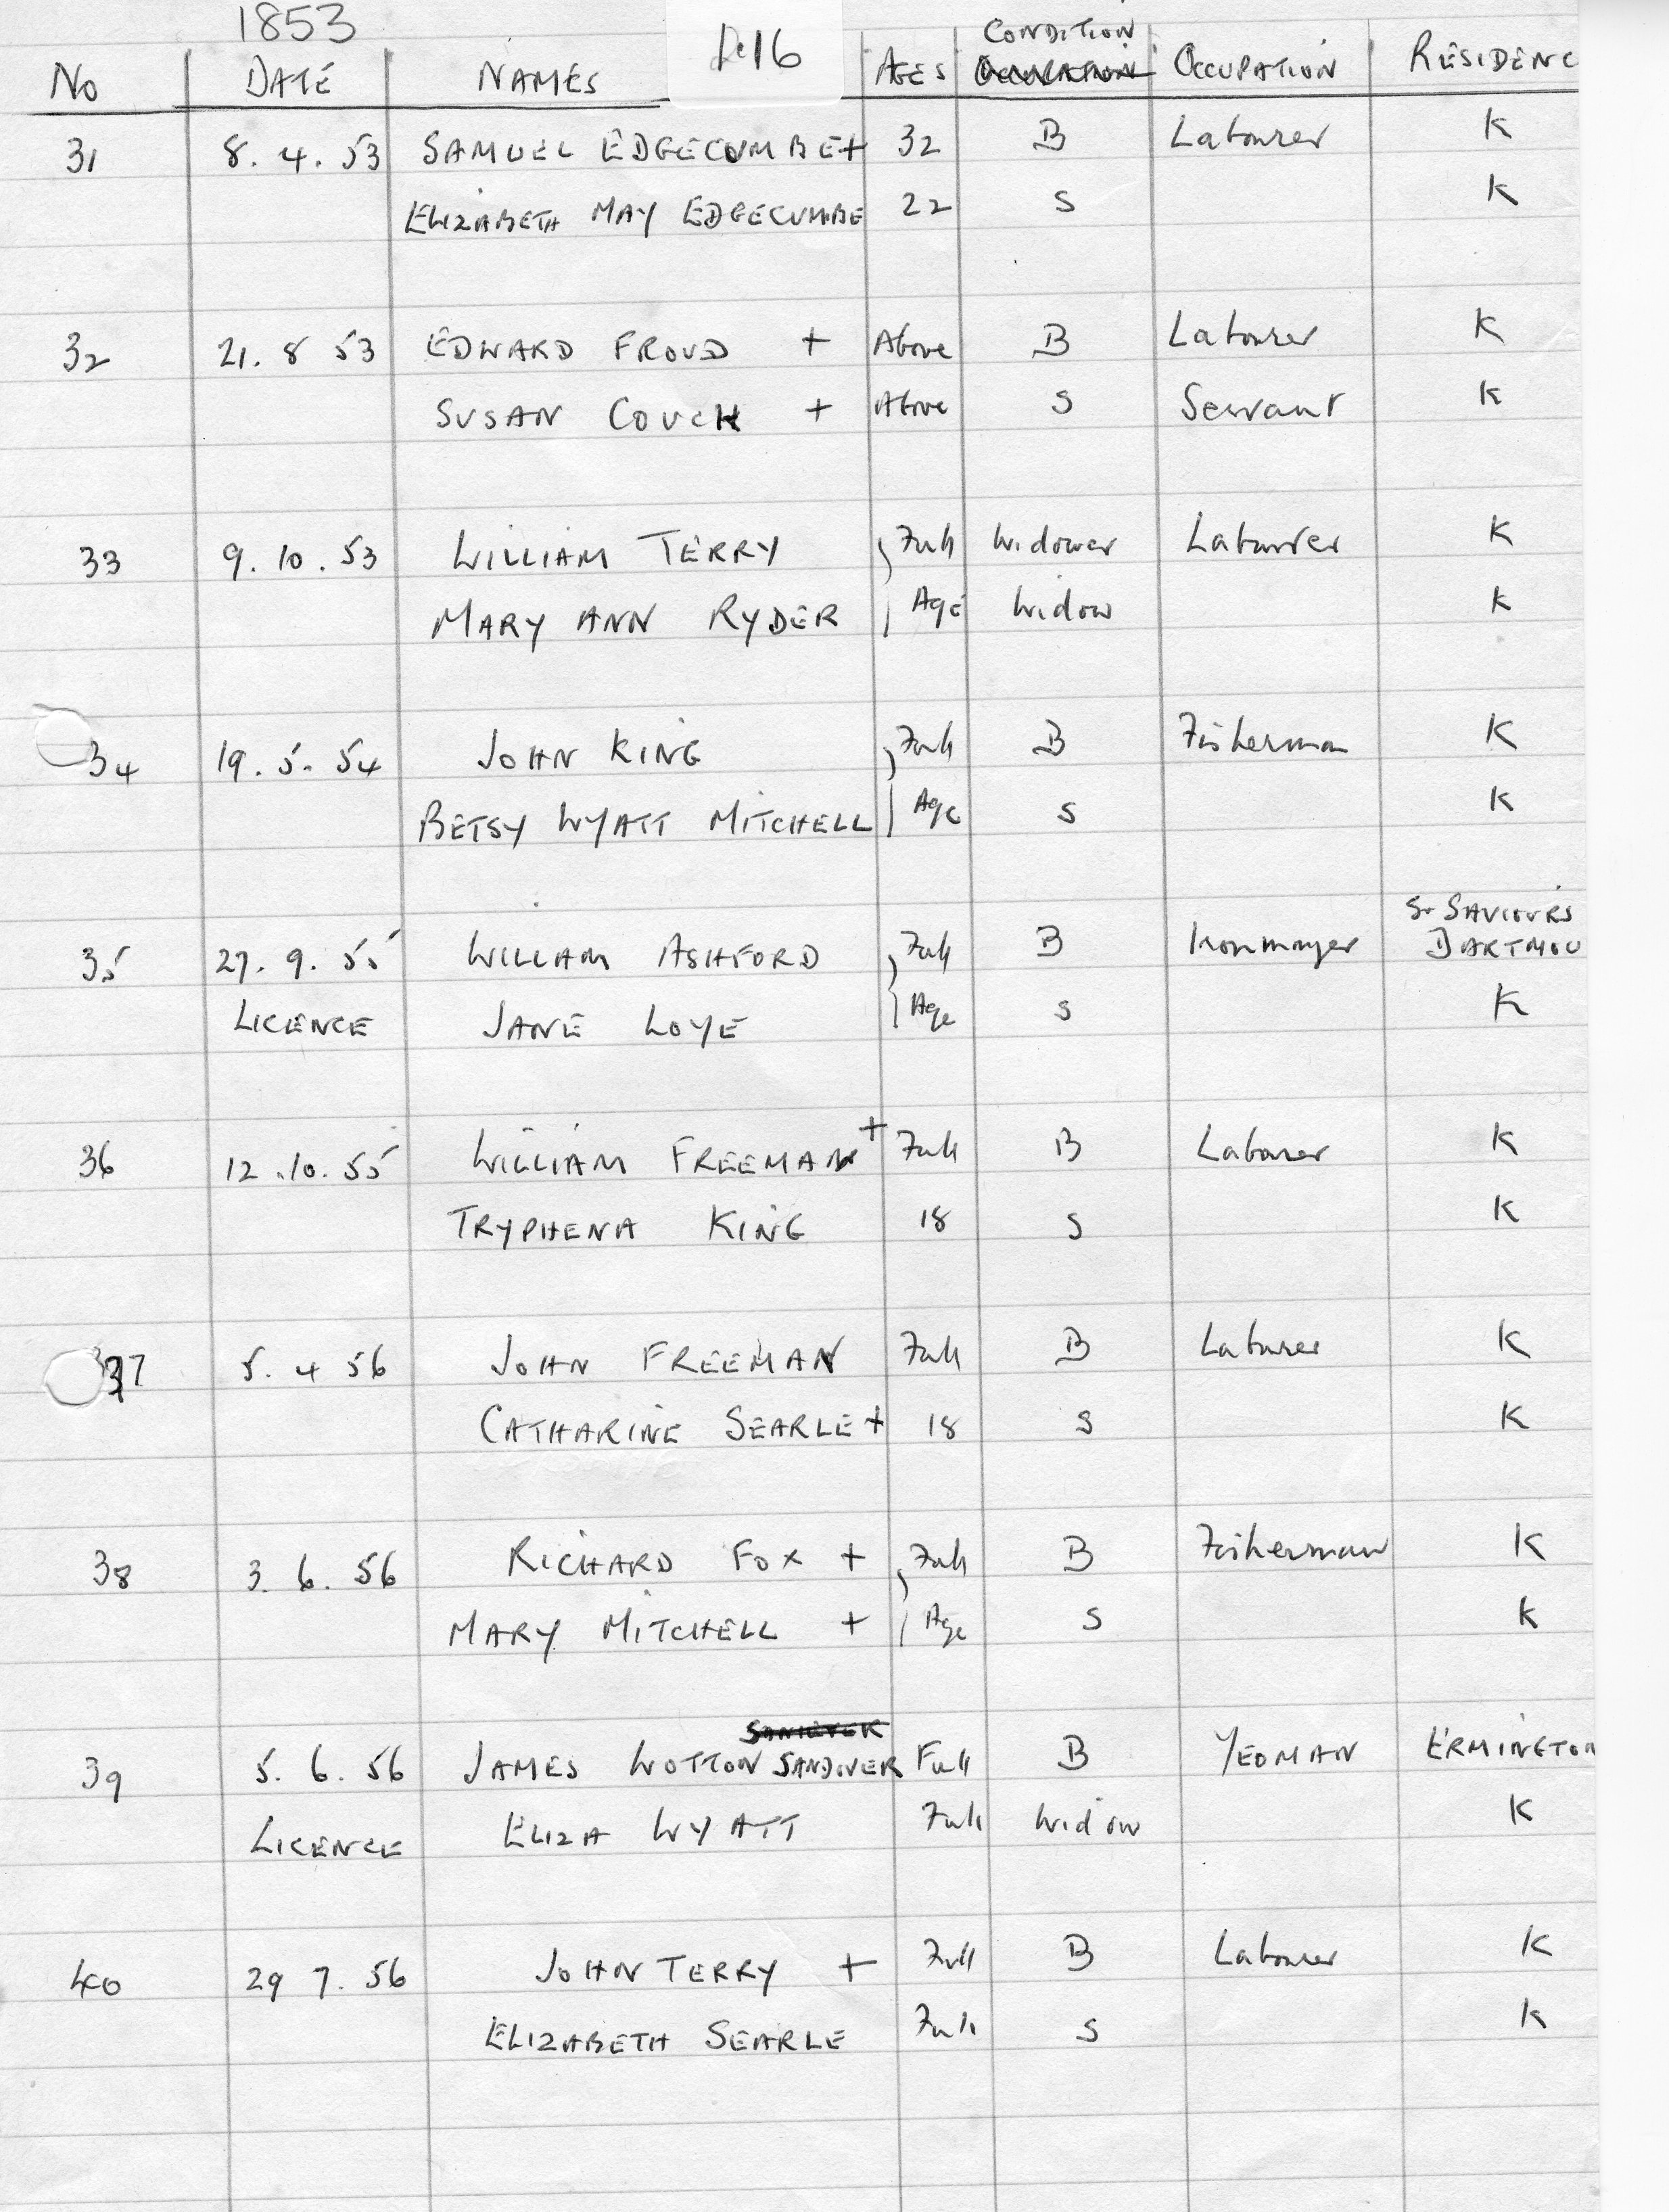 1853
L16
CONDITION
No DATE NAMES AGES OCCUPATION OCCUPATION RESIDENC
31 8. 4. 53 SAMUEL EDGECUMBE + 32 B Labourer K
ELIZABETH MAY EDGECUMBE 22 S K
32 21. 8 53 EDWARD FROUD + Above B Labourer K
SUSAN COUCH + Above S Servant K
33 9. 10. 53 WILLIAM TERRY Full Widower Labourer K
MARY ANN RYDER Age Widow K
34 19. 5. 54 JOHN KING Full B Fisherman K
BETSY WYATT MITCHELL Age S K
St SAVIOURS
35 27. 9. 55 WILLIAM ASHFORD Full B Ironmonger DARTMOU
LICENCE JANE LOYE Age S K
36 12. 10. 55 WILLIAM FREEMAN + Full B Labourer K
TRYPHENA KING 18 S K
37 5. 4 56 JOHN FREEMAN Full B Labourer K
CATHARINE SEARLE + 18 S K
38 3. 6. 56 RICHARD FOX + Full B Fisherman K
MARY MITCHELL + Age S K
39 5. 6. 56 JAMES WOTTON SANDIVER Full B YEOMAN ERMINGTON
LICENCE ELIZA WYATT Full Widow K
40 29 7. 56 JOHN TERRY + Full B Labourer K
ELIZABETH SEARLE Full S K